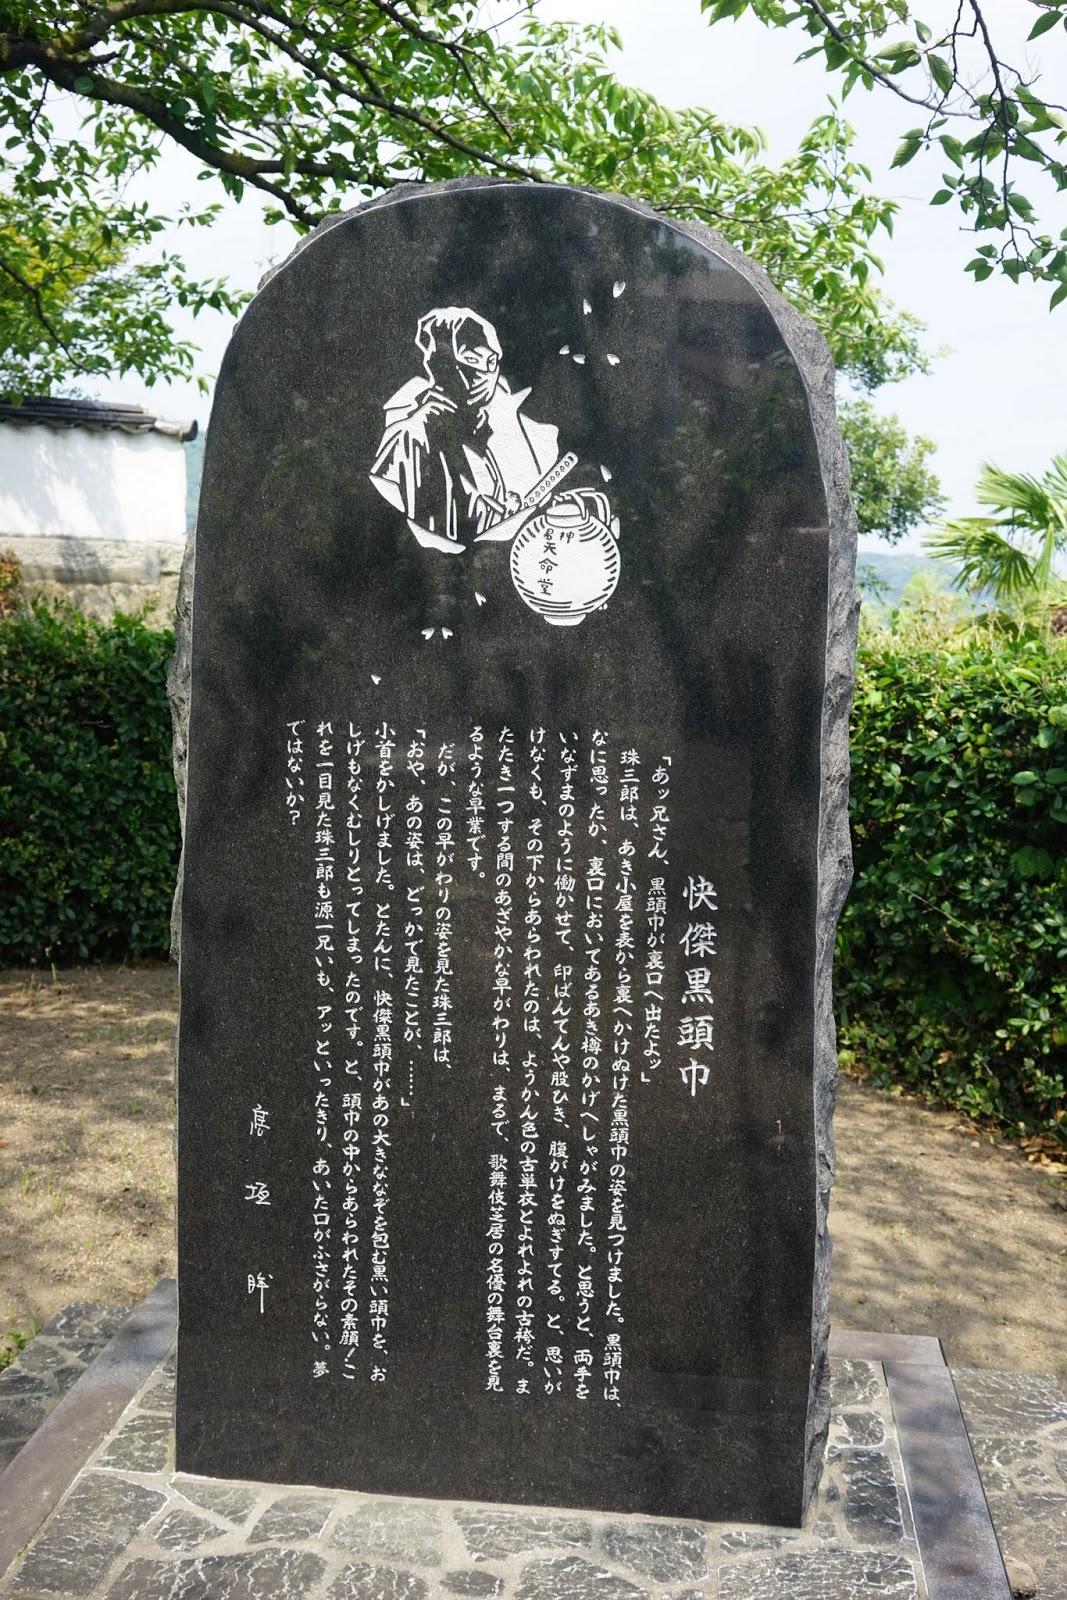 易 神
天命堂
快傑黒頭巾
「あッ兄さん、黒頭巾が裏口へ出たよッ」
珠三郎は、あき小屋を表から裏へかけぬけた黒頭巾の姿を見つけました。黒頭巾は、
なに思ったか、裏口においてあるあき樽のかげへしゃがみました。と思うと、両手を
いなずまのように働かせて、印ばんてんや股ひき、腹がけをぬぎすてる。と、思いが
けなくも、その下からあらわれたのは、ようかん色の古単衣とよれよれの古袴だ。ま
たたき一つする間のあざやかな早がわりは、まるで、歌舞伎芝居の名優の舞台裏を見
るような早業です。
だが、この早がわりの姿を見た珠三郎は、
「おや、あの姿は、どっかで見たことが、……」
小首をかしげました。とたんに、快傑黒頭巾があの大きななぞを包む黒い頭巾を、お
しげもなくむしりとってしまったのです。と、頭巾の中からあらわれたその素顔！こ
れを一目見た珠三郎も源一兄いも、アッといったきり、あいた口がふさがらない。夢
ではないか？
高垣眸